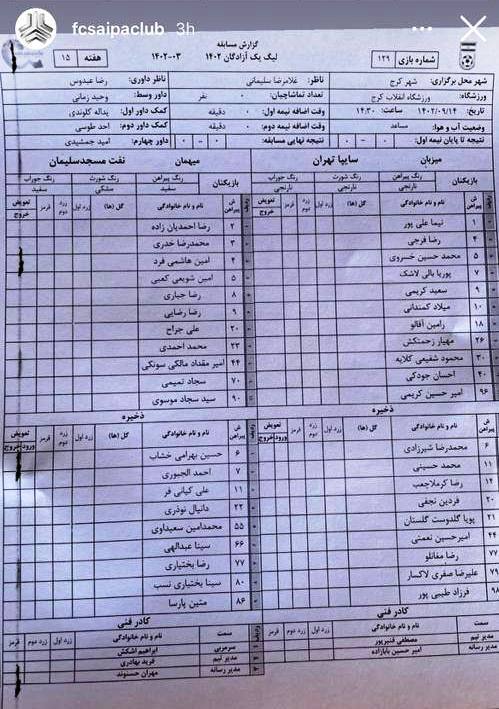 fcsaipaclub 3h
گزارش مسابقه
لیگ یک آزادگان ۱۴۰۲
۱۴۰۲-۰۳
شماره بازی ۱۲۹
هفته ۱۵
شهر محل برگزاری: شهر کرج
ناظر: غلامرضا سلیمانی
ناظر داوری: رضا عبدوس
ورزشگاه: ورزشگاه انقلاب کرج
تعداد تماشاچیان: ۰ نفر
داور وسط: وحید زمانی
تاریخ: ۱۴۰۲/۰۹/۱۴ ساعت: ۱۴:۳۰
وقت اضافه نیمه اول: ۰ دقیقه
کمک داور اول: یداله کلوندی
وضعیت آب و هوا: مساعد
وقت اضافه نیمه دوم: ۰ دقیقه
کمک داور دوم: احد طوسی
نتیجه تا پایان نیمه اول: ۰ - ۰
نتیجه نهایی مسابقه: ۰ - ۰
داور چهارم: امید جمشیدی
میزبان سایپا تهران
بازیکنان
رنگ پیراهن رنگ شورت رنگ جوراب
نارنجی نارنجی نارنجی
ش پیراهن نام و نام خانوادگی گل (ها) زرد اول زرد دوم قرمز تعویض خروج
۱ نیما علی پور
۴ رضا فرجی
۵ محمد حسین خسروی
۷ پوریا بالی لاشک
۹ سعید کریمی
۱۰ میلاد کمندانی
۱۸ رامین آقالو
۲۶ مهیار زحمتکش
۳۰ محمود شفیعی کلایه
۴۰ احسان جودکی
۹۶ امیر حسین کریمی
ذخیره
ش پیراهن نام و نام خانوادگی گل (ها) زرد اول زرد دوم قرمز تعویض ورود خروج
۶ محمدرضا شیرزادی
۱۱ محمد حسینی
۱۴ رضا کرملاچعب
۲۰ فردین نجفی
۲۱ پویا گلدوست گلستان
۴۴ امیرحسین نعمتی
۷۷ رضا مغانلو
۷۹ علیرضا صفری لاکسار
۹۸ فرزاد طیبی پور
کادر فنی
سمت نام و نام خانوادگی زرد اول زرد دوم قرمز
مدیر تیم مصطفی قنبرپور
مدیر رسانه امیر حسین بابازاده
میهمان نفت مسجدسلیمان
بازیکنان
رنگ پیراهن رنگ شورت رنگ جوراب
سفید مشکی سفید
ردیف ش پیراهن نام و نام خانوادگی گل (ها) زرد اول زرد دوم قرمز تعویض خروج
۲ رضا احمدیان زاده
۳ محمدرضا خدری
۴ امین هاشمی فرد
۵ امین شویعی کعبی
۸ رضا جباری
۹ رضا رضایی
۲۰ علی جراح
۲۳ محمد احمدی
۴۴ امیر مقداد مالکی سونکی
۷۰ سجاد تمیمی
۹۰ سید سجاد موسوی
ذخیره
ردیف ش پیراهن نام و نام خانوادگی گل (ها) زرد اول زرد دوم قرمز تعویض ورود خروج
۶ حسین بهرامی خشاب
۷ احمد الجبوری
۱۱ علی کیانی فر
۲۲ دانیال نوذری
۵۵ محمدامین سعیداوی
۶۶ سینا عبدالهی
۷۷ رضا بختیاری
۸۰ سینا بختیاری نسب
۸۶ متین پارسا
کادر فنی
ردیف سمت نام و نام خانوادگی زرد اول زرد دوم قرمز
۱ سرمربی ابراهیم اشکش
۲ مدیر تیم فرید بهادری
۳ مدیر رسانه مهران حسنوند